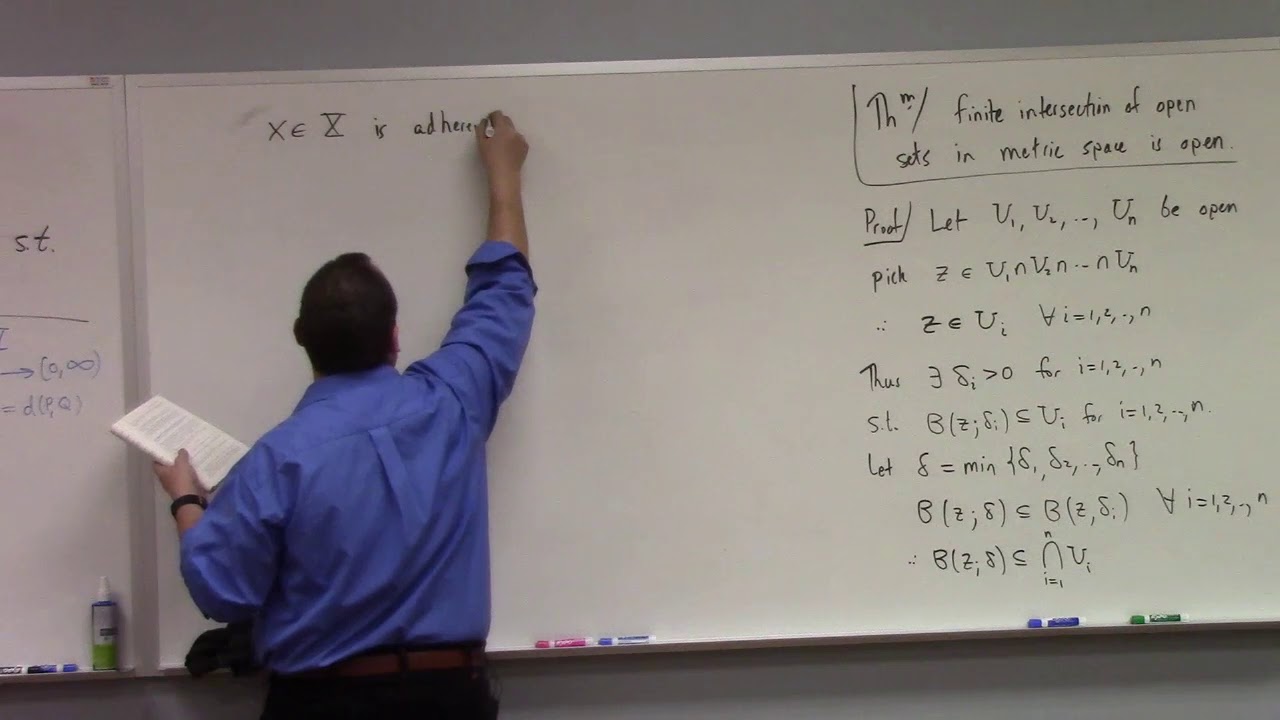 s.t.
→ (0,∞)
= d(P,Q)
x ∈ X is adheren
Thᵐ/ finite intersection of open
sets in metric space is open.
Proof/ Let U₁, U₂, .., Uₙ be open
pick z ∈ U₁ ∩ U₂ ∩ ... ∩ Uₙ
∴ z ∈ Uᵢ ∀ i=1,2,..,n
Thus ∃ δᵢ > 0 for i=1,2,..,n
s.t. B(z; δᵢ) ⊆ Uᵢ for i=1,2,..,n.
Let δ = min {δ₁, δ₂, .., δₙ}
B(z; δ) ⊆ B(z, δᵢ) ∀ i=1,2,..,n
∴ B(z; δ) ⊆ ⋂ᵢ₌₁ⁿ Uᵢ